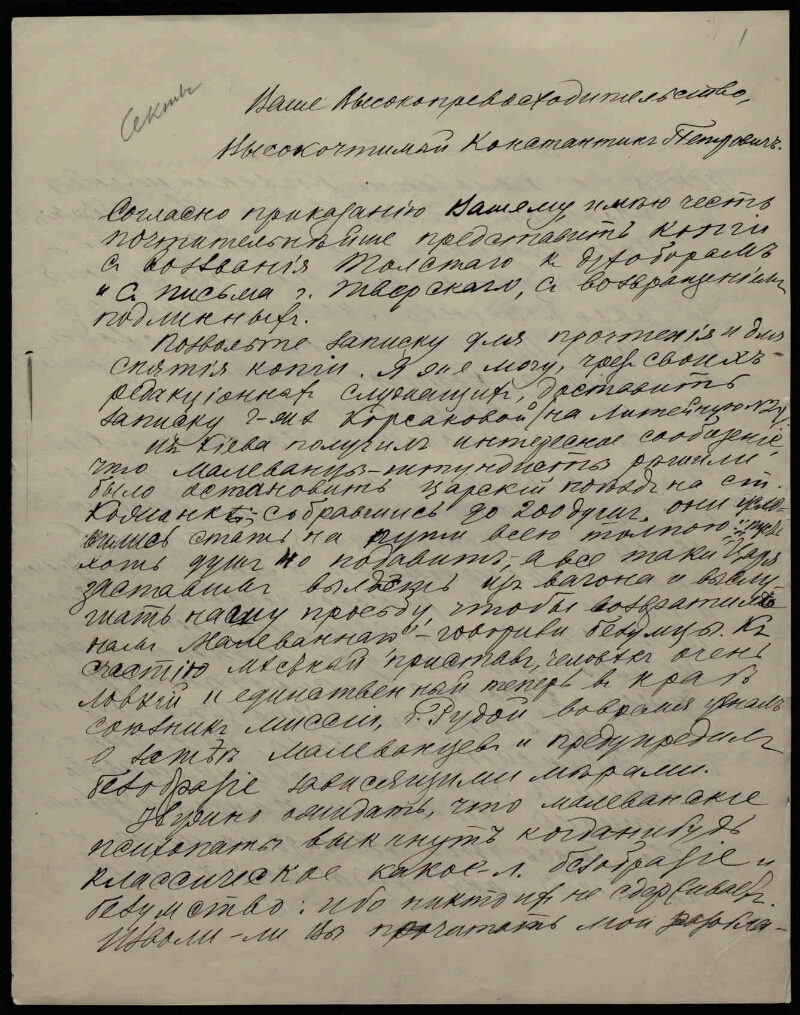 1
Секты
Ваше Высокопревосходительство,
Высокочтимый Константинъ Петровичъ.
Согласно приказанію Вашему, имѣю честь
почтительнѣйше представить копіи
съ воззванія Толстаго къ духоборамъ
и съ письма г. Тверскаго, съ возвращеніемъ
подлинныхъ.
Позвольте записку для прочтенія и для
снятія копіи. Я же могу, чрез своихъ
редакціонных служащих, доставить
записку г-жѣ Корсаковой (на Литейную №
Изъ Кіева получилъ интересное сообщеніе,
что малеванцы-штундисты рѣшили
было остановить царскій поѣздъ на ст.
Кожанка; собравшись до 200 душъ, они
вились стать на пути всею толпою: „пусть
хоть душъ 40 подавитъ, а все таки Царя
заставимъ вылѣзть изъ вагона и выслу-
шать нашу просьбу, чтобы возвратили
намъ Малеваннаго" - говорили безумцы. Къ
счастію мѣстный приставъ, человѣкъ очень
ловкій и единственный теперь въ краѣ
союзникъ миссіи, г. Рудой вовремя узналъ
о затѣѣ малеванцевъ и предупредилъ
безобразіе зависящими мѣрами.
Нужно ожидать, что малеванскіе
психопаты выкинутъ когданибудь
классическое какое-л. безобразіе и
безумство: ибо никто их не сдерживаетъ.
Изволи-ли Вы прочитать мой